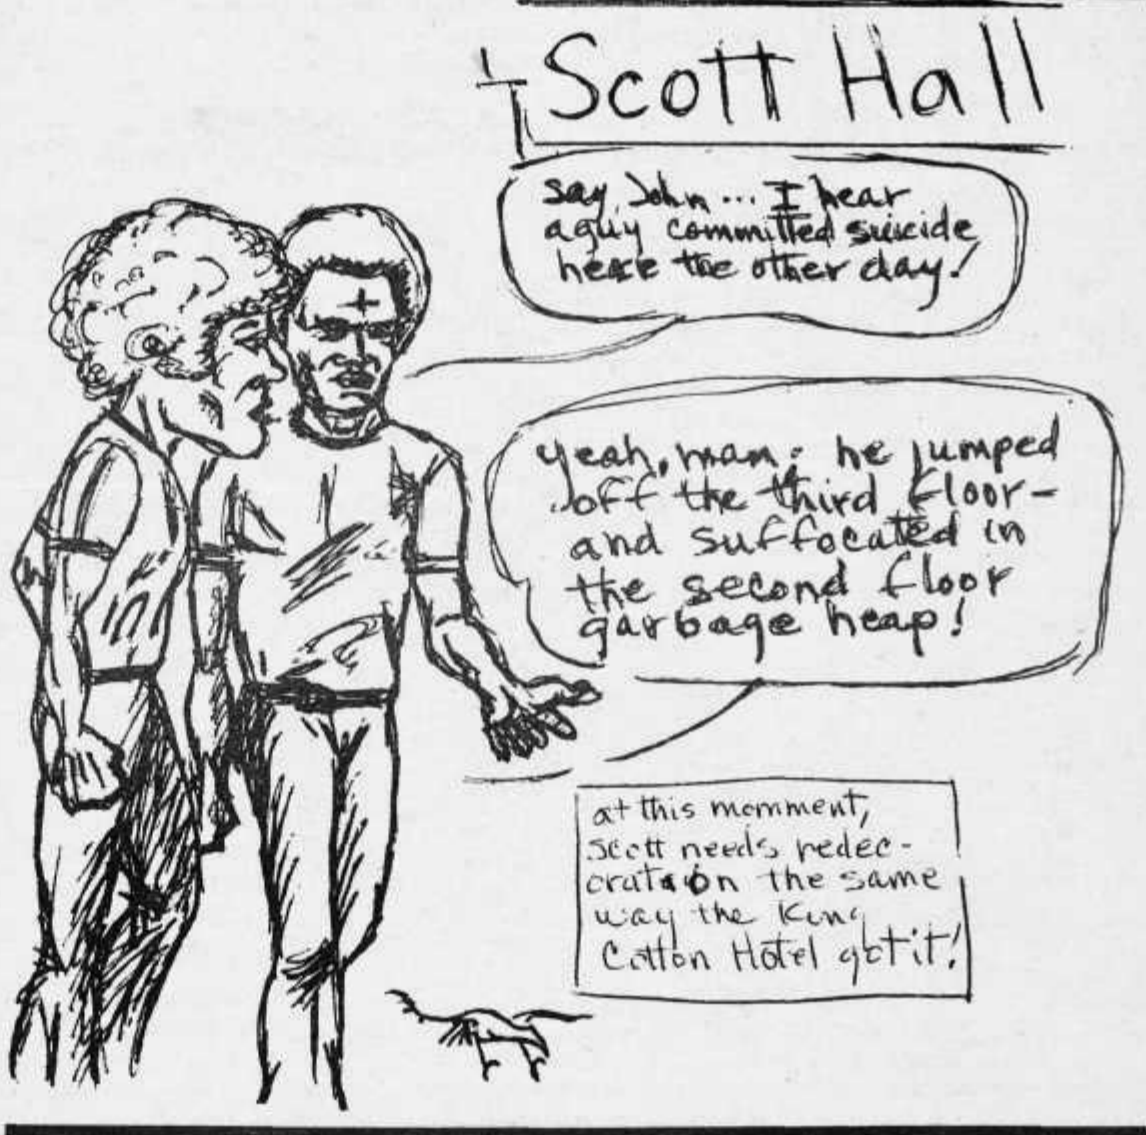 Scott Hall
say, John... I hear
a guy committed suicide
here the other day!
yeah, man; he jumped
off the third floor-
and suffocated in
the second floor
garbage heap!
at this momment,
scott needs redec-
oration the same
way the King
Cotton Hotel got it!